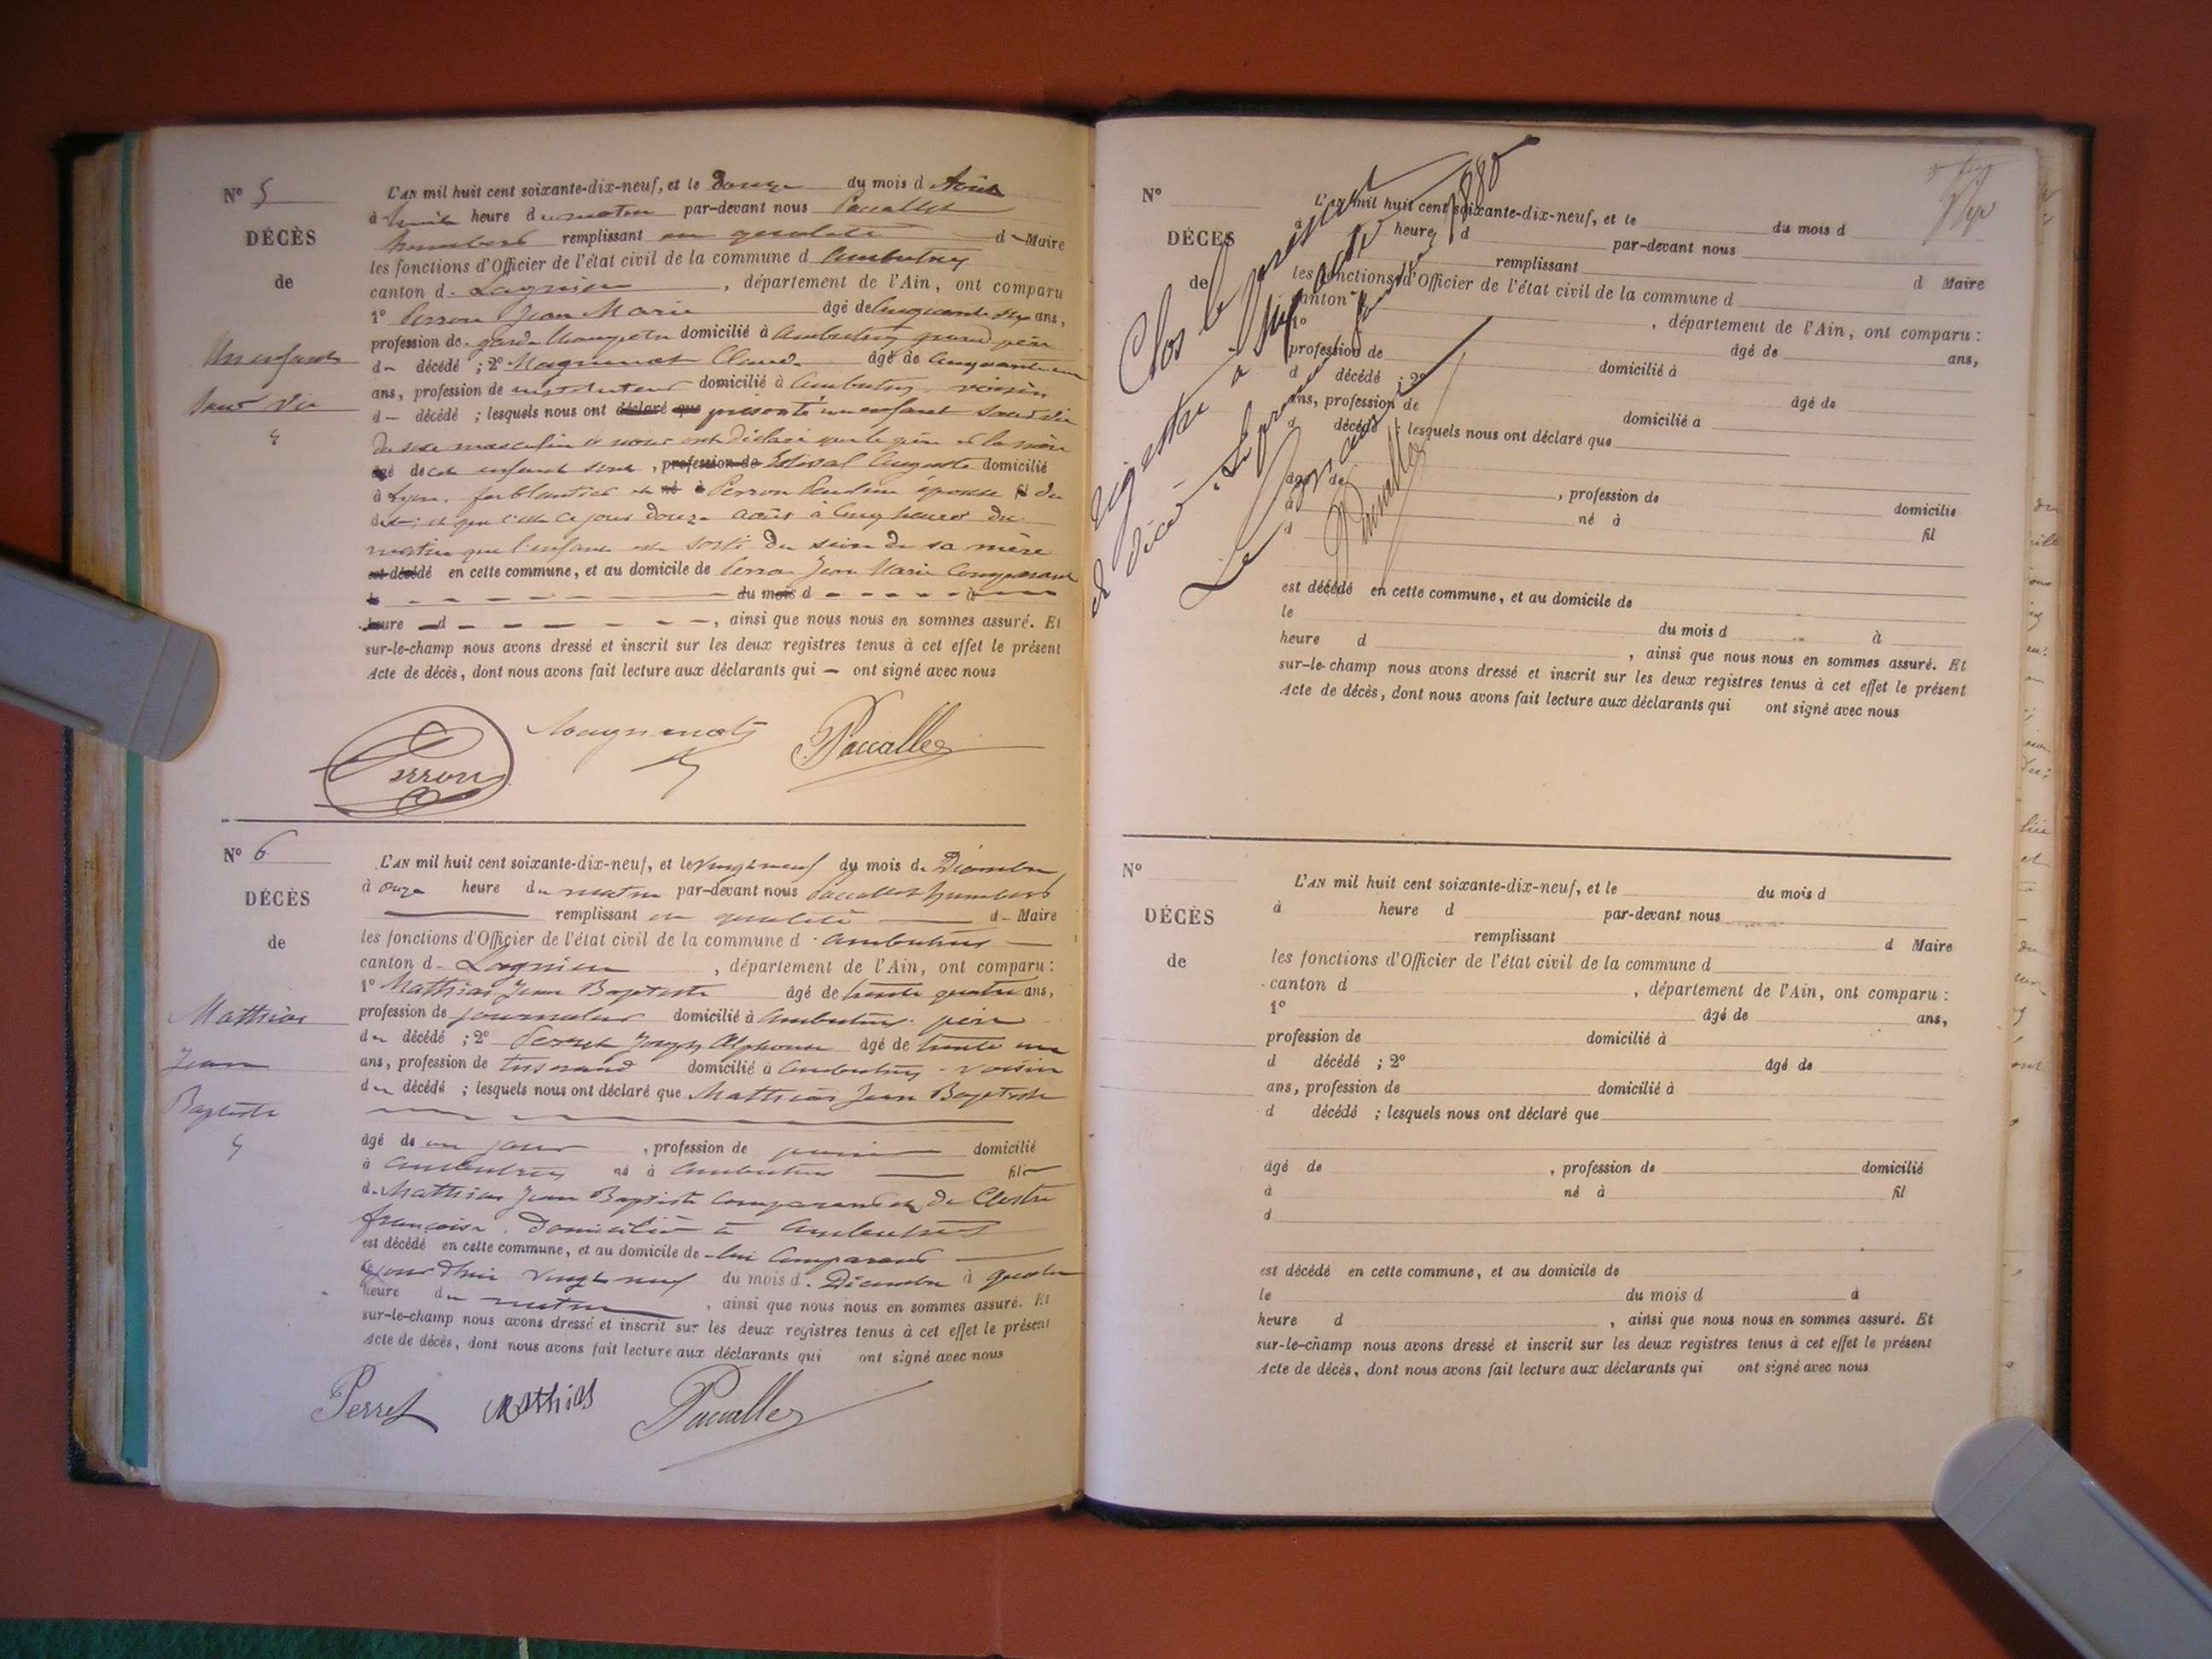 N° 5
DÉCÈS
de
Un enfant
sans vie
L'AN mil huit cent soixante-dix-neuf, et le douze du mois d Août
à huit heure du matin par-devant nous Paccallet
humbert remplissant en qualité d Maire
les fonctions d'Officier de l'état civil de la commune d Ambutrix
canton d. Lagnieu, département de l'Ain, ont comparu
1° Perron Jean Marie âgé de cinquante six ans,
profession de garde champêtre domicilié à ambutrix grand père
d décédé ; 2° Magnenot Claude âgé de cinquante un
ans, profession de instituteur domicilié à Ambutrix voisin
d décédé ; lesquels nous ont déclaré que présenté un enfant sans vie
du sexe masculin et nous ont déclaré que le père et la mère
âgé de cet enfant sont, profession de Estival Auguste domicilié
à Lyon. ferblantier et né à Perron épouse fil du
dit; et que c'est ce jour douze août à cinq heures du
matin que l'enfant est sorti du sein de sa mère
est décédé en cette commune, et au domicile de Perron Jean Marie comparant
le du mois d à
heure d, ainsi que nous nous en sommes assuré. Et
sur-le-champ nous avons dressé et inscrit sur les deux registres tenus à cet effet le présent
Acte de décès, dont nous avons fait lecture aux déclarants qui — ont signé avec nous
Perron Magnenot Paccallet
N° 6
DÉCÈS
de
Matthias
Jean
Baptiste
L'AN mil huit cent soixante-dix-neuf, et le vingt neuf du mois de Décembre
à onze heure du matin par-devant nous Paccallet humbert
remplissant en qualité d - Maire
les fonctions d'Officier de l'état civil de la commune d ambutrix
canton d. Lagnieu, département de l'Ain, ont comparu :
1° Matthias Jean Baptiste âgé de trente quatre ans,
profession de journalier domicilié à Ambutrix père
du décédé ; 2° Perret Joseph Alphonse âgé de trente un
ans, profession de tisserand domicilié à Ambutrix - voisin
du décédé ; lesquels nous ont déclaré que Matthias Jean Baptiste
âgé de un jour, profession de domicilié
à Ambutrix né à Ambutrix fils
de Matthias Jean Baptiste comparant et de
françoise. Domicilié à Ambutrix
est décédé en cette commune, et au domicile de lui comparant
ajourdhui vingt neuf du mois d. Décembre à quatre
heure du matin, ainsi que nous nous en sommes assuré. Et
sur-le-champ nous avons dressé et inscrit sur les deux registres tenus à cet effet le présent
Acte de décès, dont nous avons fait lecture aux déclarants qui ont signé avec nous
Perret Mathias Paccallet
N°
DÉCÈS
de
L'AN mil huit cent soixante-dix-neuf, et le du mois d
à heure d par-devant nous
remplissant d Maire
les fonctions d'Officier de l'état civil de la commune d
canton, département de l'Ain, ont comparu :
1° âgé de ans,
profession de domicilié à
d décédé ; 2° âgé de
ans, profession de domicilié à
d décédé ; lesquels nous ont déclaré que
âgé de, profession de domicilié
à né à fil
d
est décédé en cette commune, et au domicile de
le du mois d à
heure d, ainsi que nous nous en sommes assuré. Et
sur-le-champ nous avons dressé et inscrit sur les deux registres tenus à cet effet le présent
Acte de décès, dont nous avons fait lecture aux déclarants qui ont signé avec nous
Clos le présent
registre à six actes
de décès. Le premier janvier 1880
Le Maire
Paccallet
N°
DÉCÈS
de
L'AN mil huit cent soixante-dix-neuf, et le du mois d
à heure d par-devant nous
remplissant d Maire
les fonctions d'Officier de l'état civil de la commune d
canton d, département de l'Ain, ont comparu :
1° âgé de ans,
profession de domicilié à
d décédé ; 2° âgé de
ans, profession de domicilié à
d décédé ; lesquels nous ont déclaré que
âgé de, profession de domicilié
à né à fil
d
est décédé en cette commune, et au domicile de
le du mois d à
heure d, ainsi que nous nous en sommes assuré. Et
sur-le-champ nous avons dressé et inscrit sur les deux registres tenus à cet effet le présent
Acte de décès, dont nous avons fait lecture aux déclarants qui ont signé avec nous